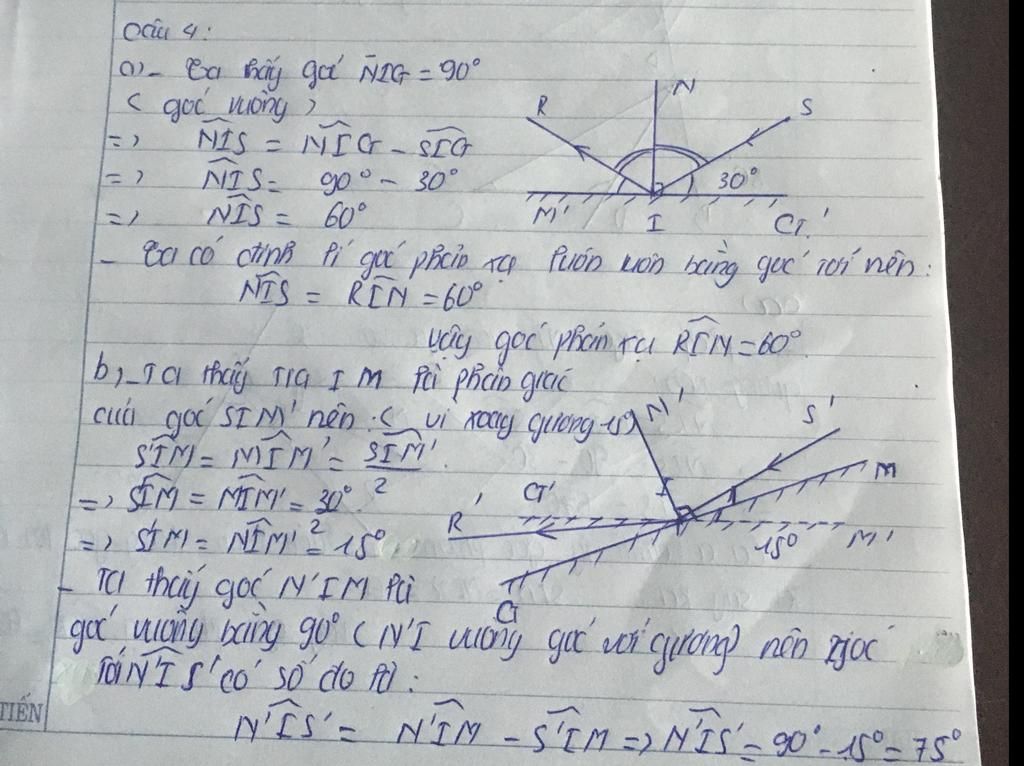 Câu 4:
a) - Ta thấy góc NIG = 90°
( góc vuông )
=> NIS = NIG - SIG
=> NIS = 90° - 30°
=> NIS = 60°
R N S
30°
M' I G'
- Ta có định lí góc phản xạ luôn luôn bằng góc tới nên:
NIS = RIN = 60°
Vậy góc phản xạ RIN = 60°
b) - Ta thấy tia IM là phân giác
của góc SIM' nên ( vì xoay gương 15°)
S'IM = MIM' = SIM'
2
=> SIM = MIM' = 30°
2
=> SIM = NIM' = 15°
N' S'
M
I
G'
R'
15° M'
G
- Ta thấy góc N'IM là
góc vuông bằng 90° ( N'I vuông góc với gương) nên góc
tới N'IS' có số đo là:
N'IS' = N'IM - S'IM => N'IS' = 90° - 15° = 75°
TIẾN